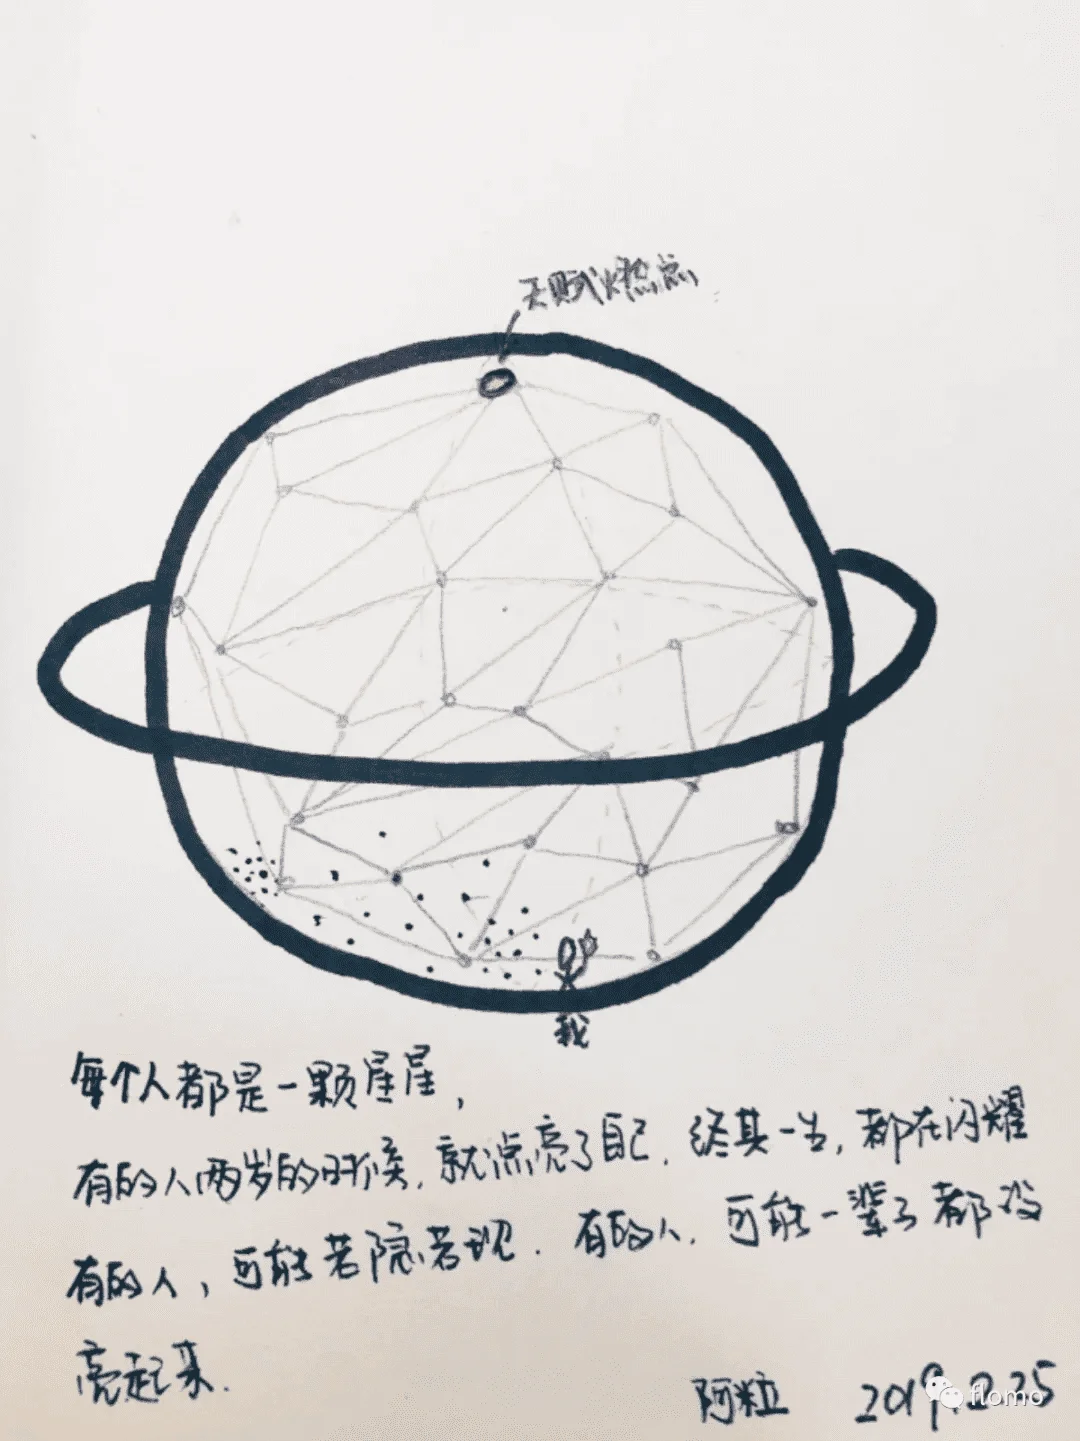 天赋燃点
我
每个人都是一颗星星，
有的人两岁的时候，就点亮了自己．终其一生，都在闪耀
有的人，可能若隐若现．有的人．可能一辈子都没
亮起来．
阿粒 2019.2.25
flomo